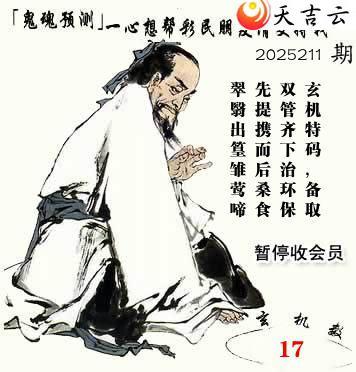 天吉云
「鬼魂预测」一心想帮彩民朋友
2025211 期
玄机特码，备取
双管齐下治环保
先提携而后桑食
翠翳出篁雏莺啼
暂停收会员
玄机数
17